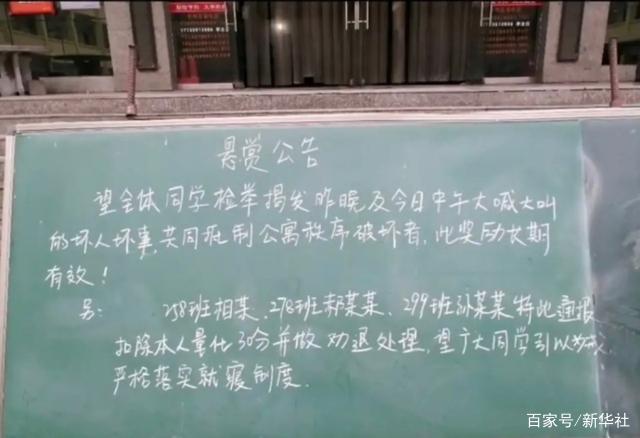 悬赏公告
望全体同学检举揭发昨晚及今日中午大喊大叫
的坏人坏事,共同抵制公寓秩序破坏者,此奖励长期
有效!
另: 258班相某、278班郝某某、299班孙某某特此通报
扣除本人量化30分并做劝退处理,望广大同学引以为戒,
严格落实就寝制度.
百家号/新华社